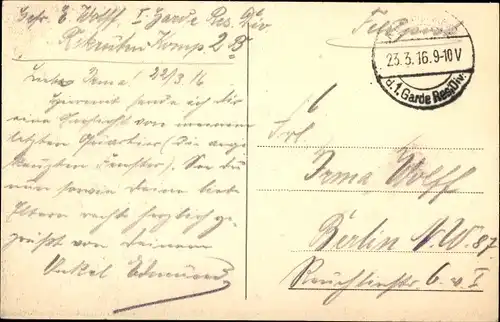 Gefr. E. Wolff I. Garde Res. Div
Rekruten Komp 2 B
Feldpost
23.3.16.9-10V
d.1.Garde Res.Div.
Liebe Irma! 22/3 16
Hiermit sende ich Dir
eine Ansicht von meinem
letzten Quartier (Die ange
kreuzten Fenster). Sei Du
nun sowie Deine liebe
Eltern recht herzlich ge
grüßt von Deinem
Onkel Edmund
Frl.
Irma Wolff
Berlin N.W. 87.
6. v I